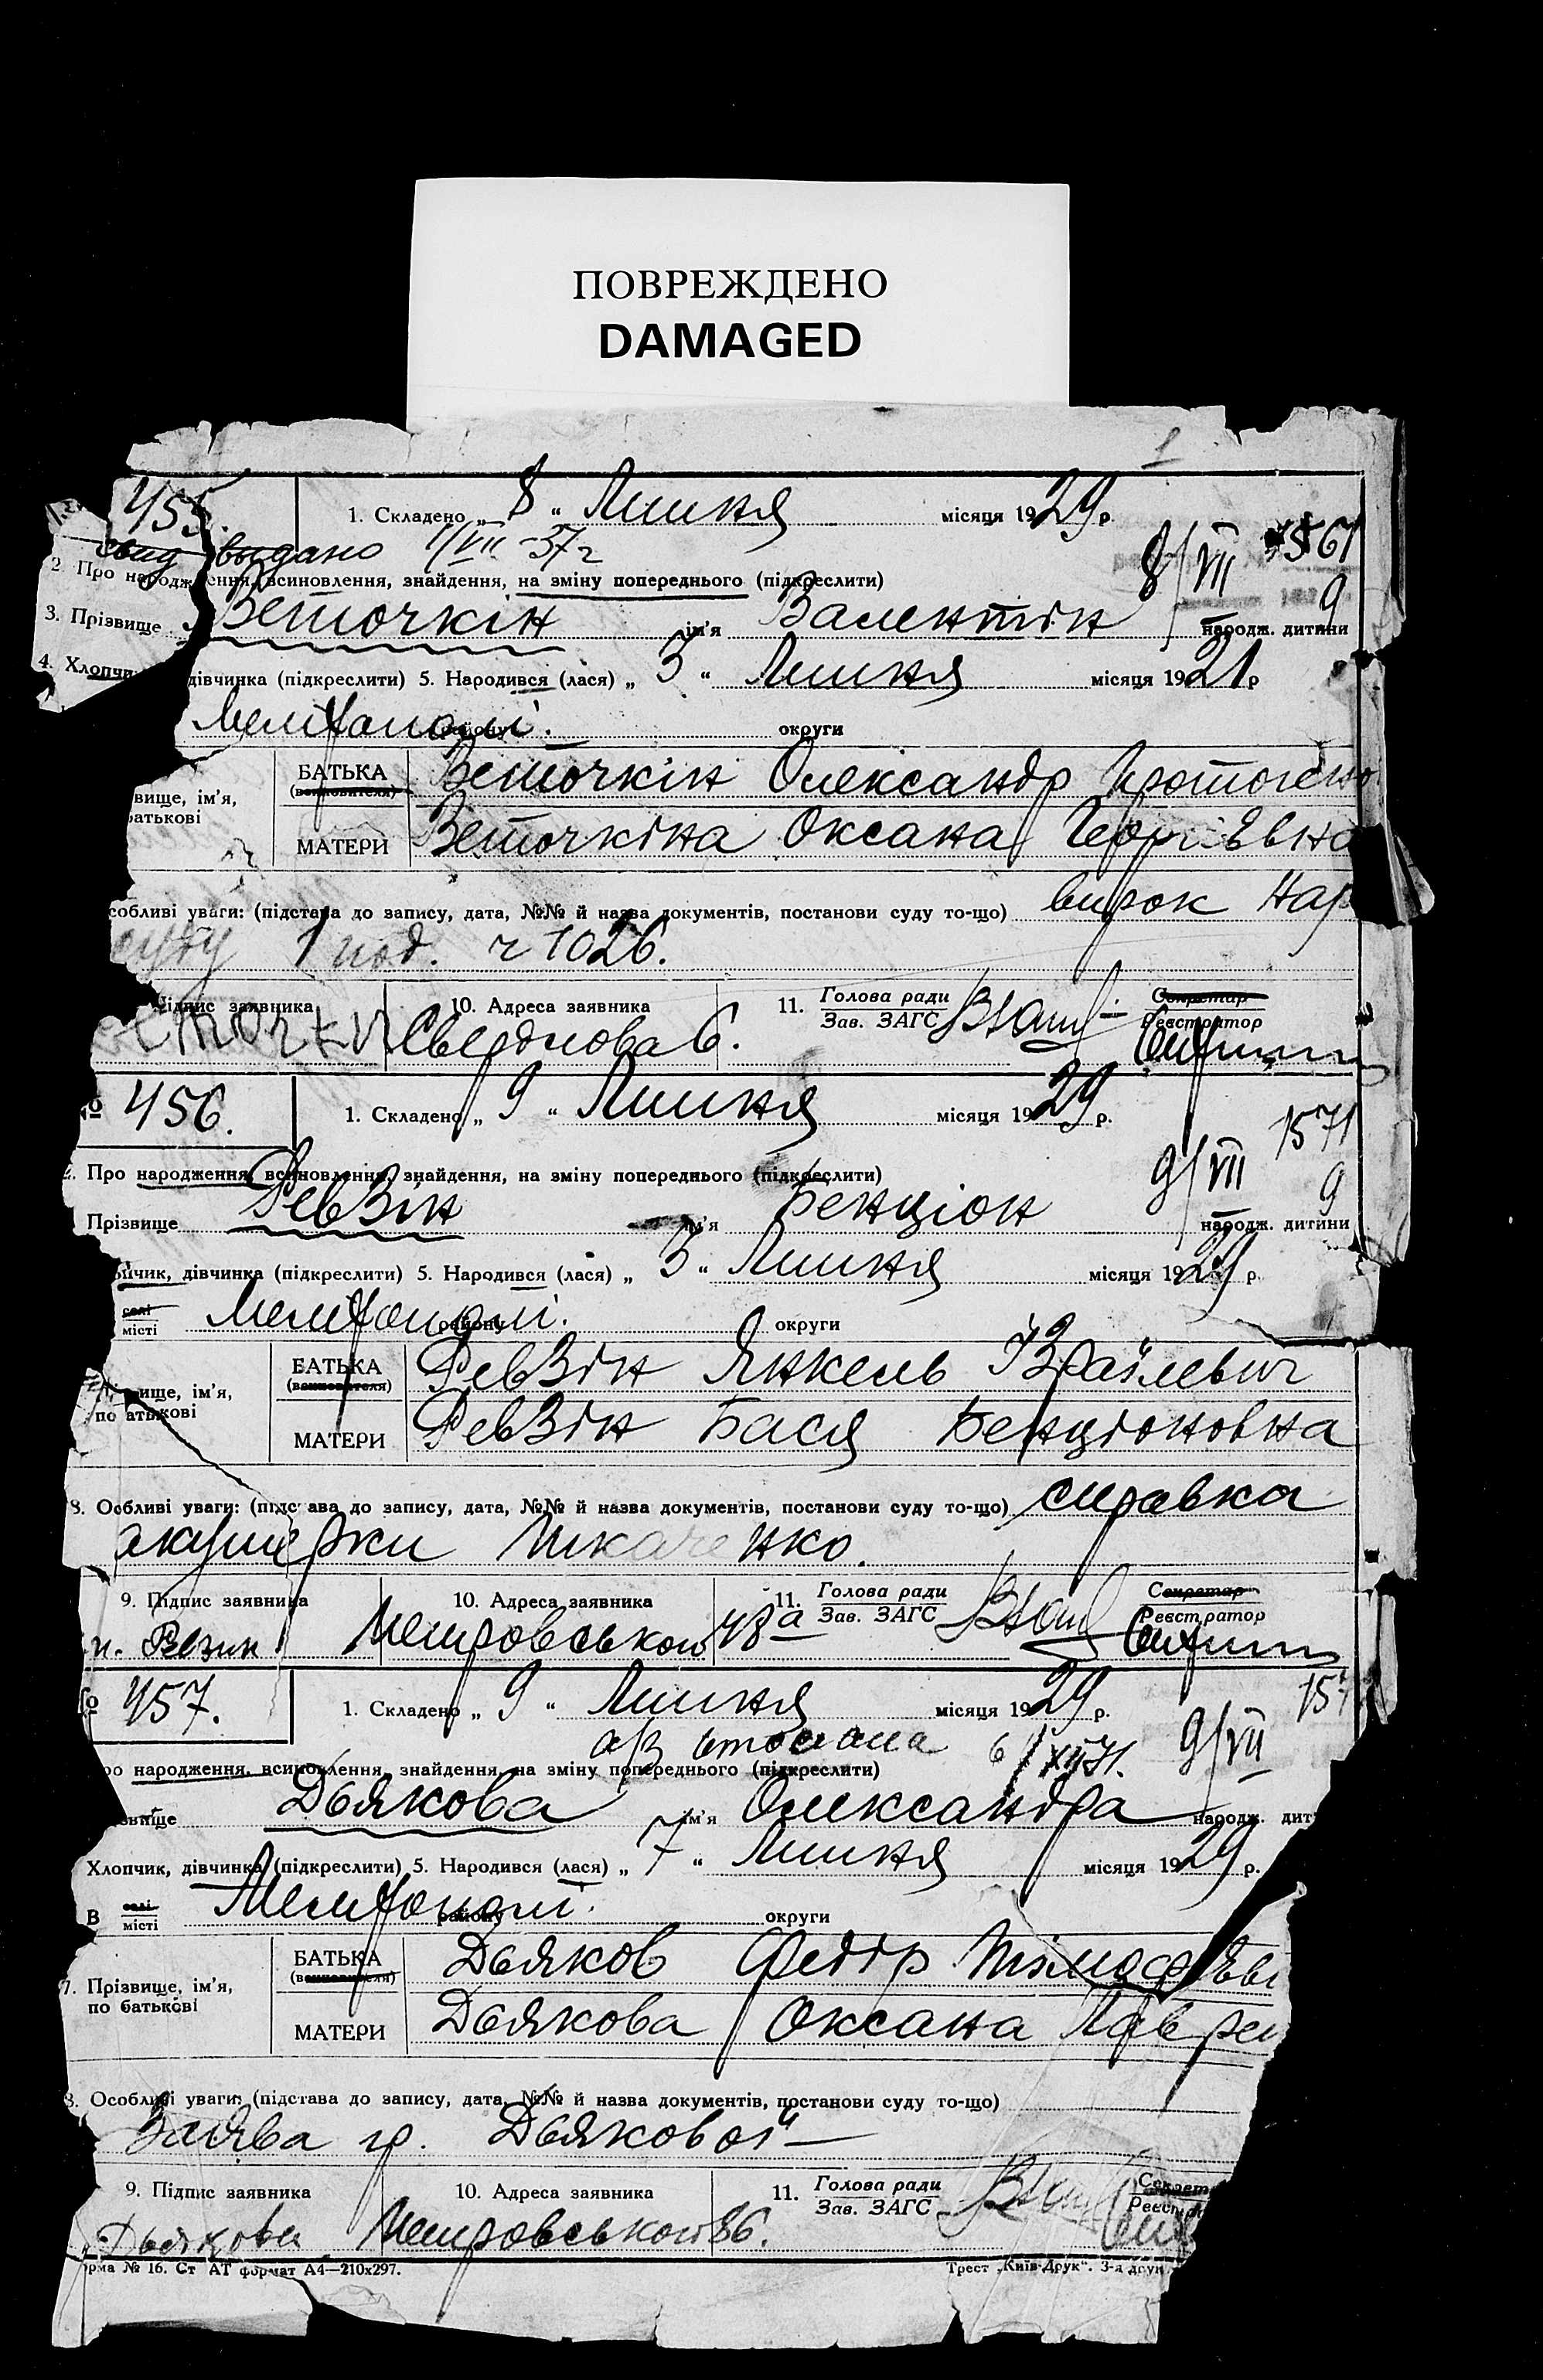 ПОВРЕЖДЕНО
DAMAGED
1
455.
1. Складено „ 8 “ Липня місяця 1929 р.
свид выдано 1/VII-37 г
8/VII 1561
2. Про народження, всиновлення, знайдення, на зміну попереднього (підкреслити)
9
3. Прізвище Веточкін ім’я Валентін народж. дитини
4. Хлопчик дівчинка (підкреслити) 5. Народився (лася) „ 3 “ Липня місяця 1921 р
Мелітополі. району округи
вище, ім’я, батькові
БАТЬКА (всиновителя) Веточкін Олександр Протоген
МАТЕРИ Веточкіна Оксана Георгієвна
собливі уваги: (підстава до запису, дата, №№ й назва документів, постанови суду то-що) вирок Нар
суду 1 под. ч 1026.
Підпис заявника 10. Адреса заявника 11. Голова ради Зав. ЗАГС Секретар Реєстратор
Свердлова 6.
№ 456.
1. Складено „ 9 “ Липня місяця 1929 р.
1571
9/VII
Про народження, всиновлення, знайдення, на зміну попереднього (підкреслити)
9
Прізвище Ревзін ім’я Бенціон народж. дитини
пчик, дівчинка (підкреслити) 5. Народився (лася) „ 3 “ Липня місяця 1929 р.
селі місті Мелітополі. району округи
вище, ім’я, по батькові
БАТЬКА (всиновителя) Ревзін Янкель Ізраїлевич
МАТЕРИ Ревзін Бася Бенціоновна
8. Особливі уваги: (підстава до запису, дата, №№ й назва документів, постанови суду то-що) справка
акушерки Ткаченко.
9. Підпис заявника 10. Адреса заявника 11. Голова ради Зав. ЗАГС Секретар Реєстратор
Ревзин Петровської 48а
№ 457.
1. Складено „ 9 “ Липня місяця 1929 р.
157
9/VII
6/XII 71.
ро народження, всиновлення, знайдення, на зміну попереднього (підкреслити)
звище Дьякова ім’я Олександра народж. дит
Хлопчик, дівчинка (підкреслити) 5. Народився (лася) „ 7 “ Липня місяця 1929 р.
В селі місті Мелітополі. району округи
7. Прізвище, ім’я, по батькові
БАТЬКА (всиновителя) Дьяков Федір Тімофєєви
МАТЕРИ Дьякова Оксана Лаврен
8. Особливі уваги: (підстава до запису, дата, №№ й назва документів, постанови суду то-що)
Заява гр. Дьякової
9. Підпис заявника 10. Адреса заявника 11. Голова ради Зав. ЗАГС Секрет Реєстр
Дьякова Петровської 86.
орма № 16. Ст АТ формат А4—210х297.
Трест „Київ-Друк“. 3-я друк